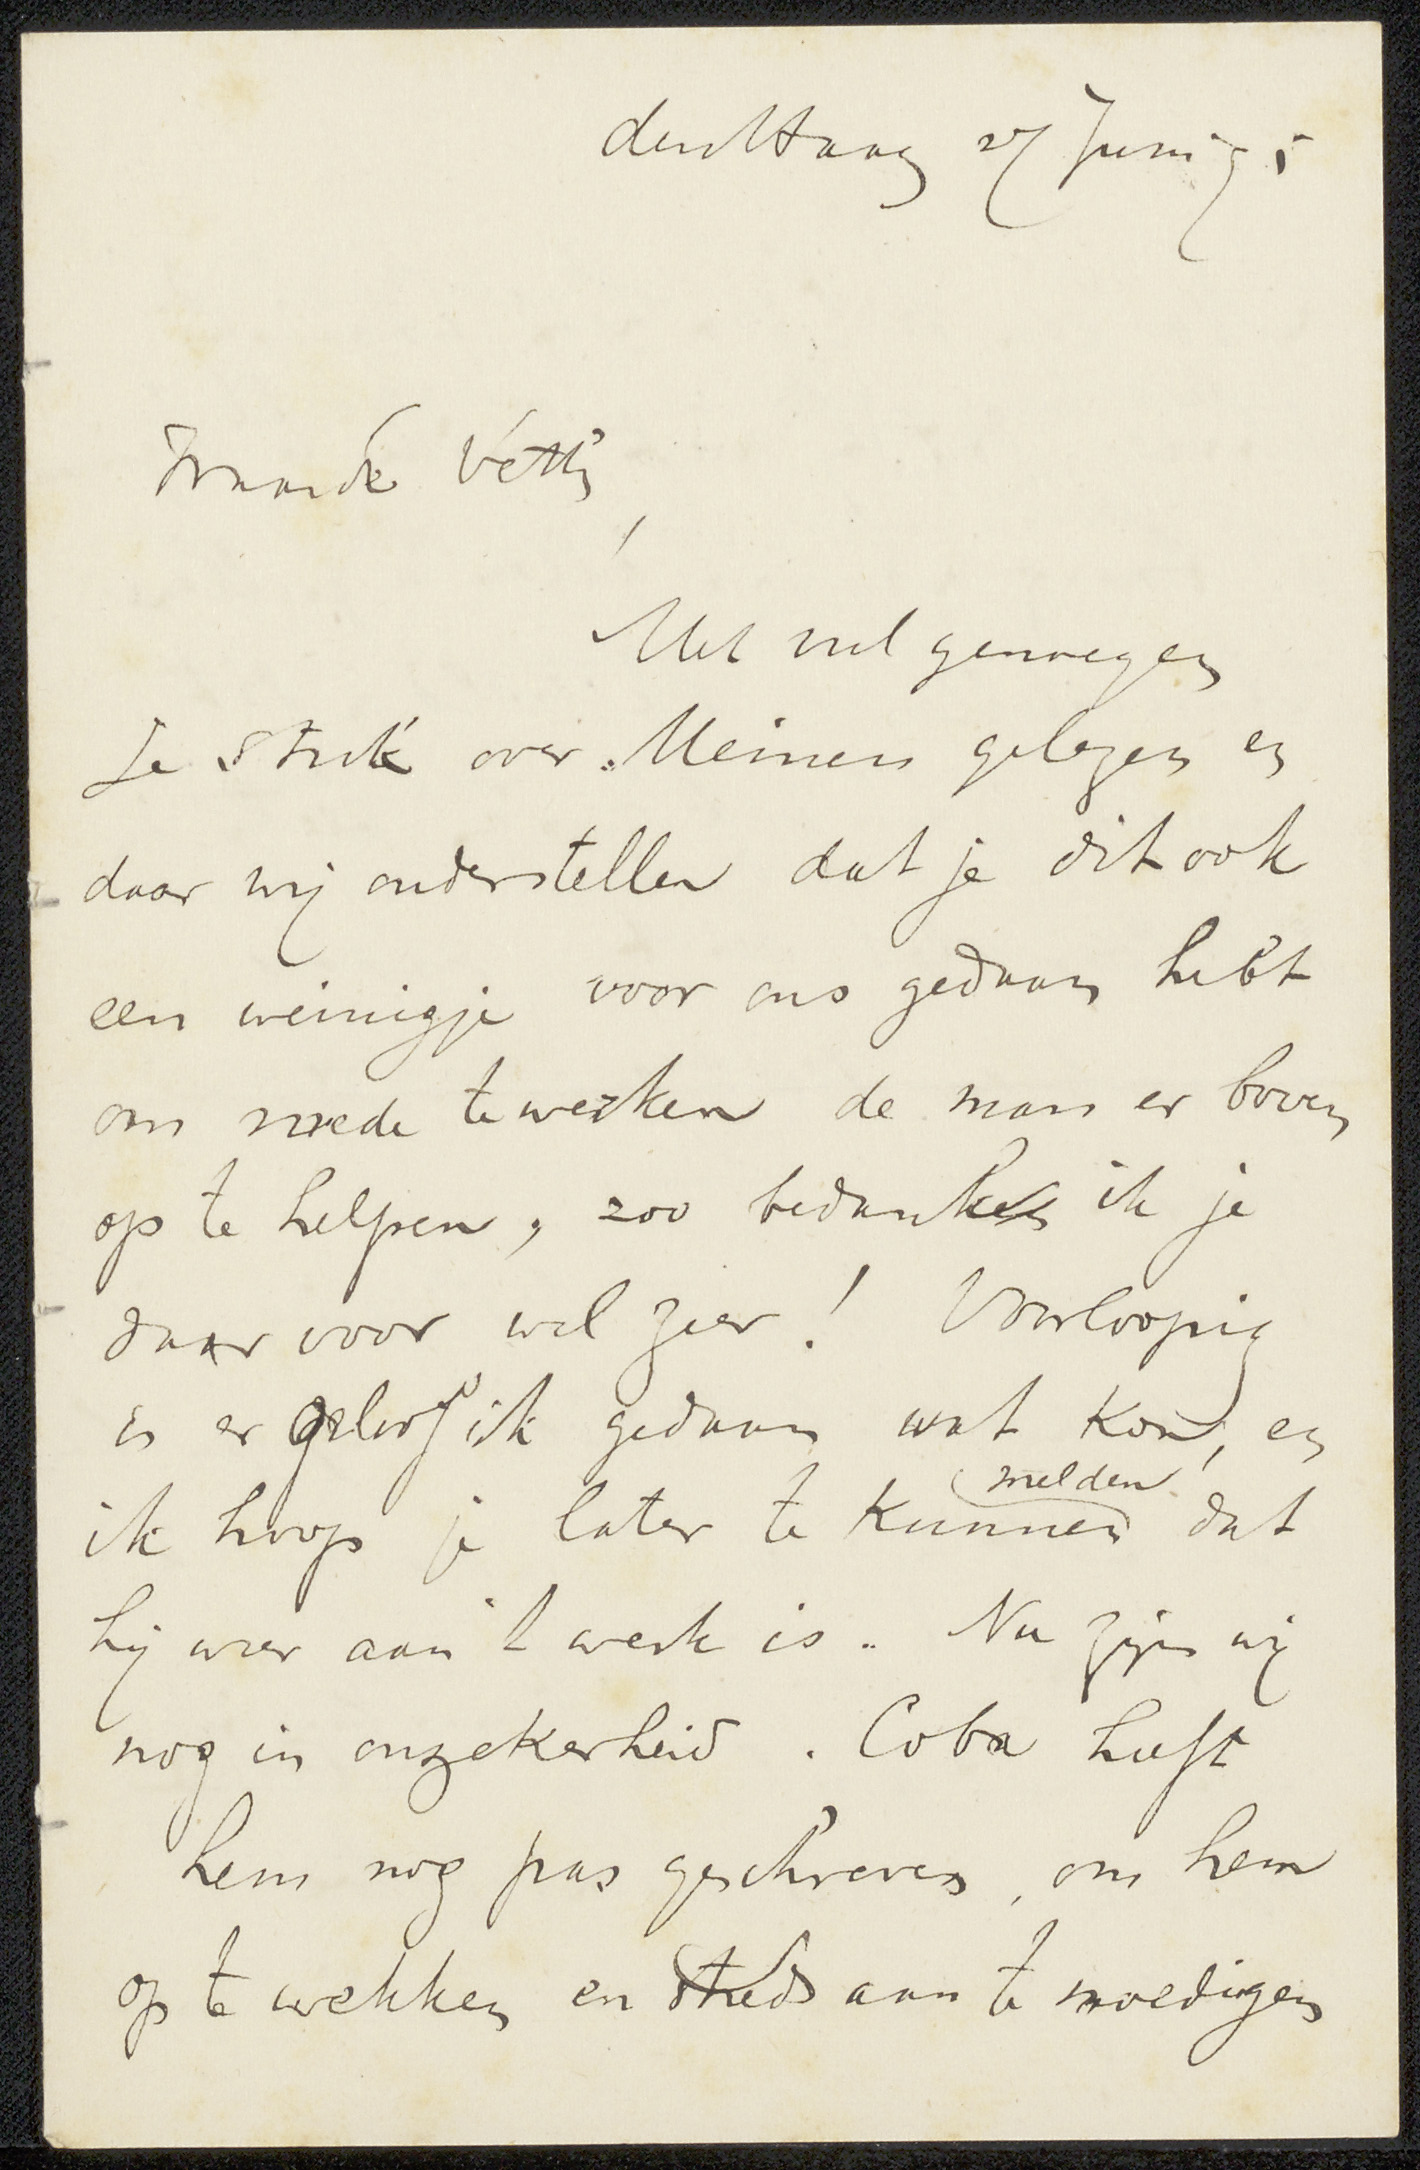 den Haag 27 Juni 95
Waarde Veth,
Met veel genoegen
Je stuk over Meiners gelezen en
daar wij onderstellen dat je dit ook
een weinigje voor ons gedaan hebt
om mede te werken de man er boven
op te helpen, zoo bedank ik je
daar voor wel zeer! Voorloopig
is er geloof ik gedaan wat kon, en
ik hoop je later te kunnen melden dat
hij weer aan 't werk is. Nu zijn wij
nog in onzekerheid. Coba heeft
hem nog pas geschreven, om hem
op te wekken en steeds aan te moedigen